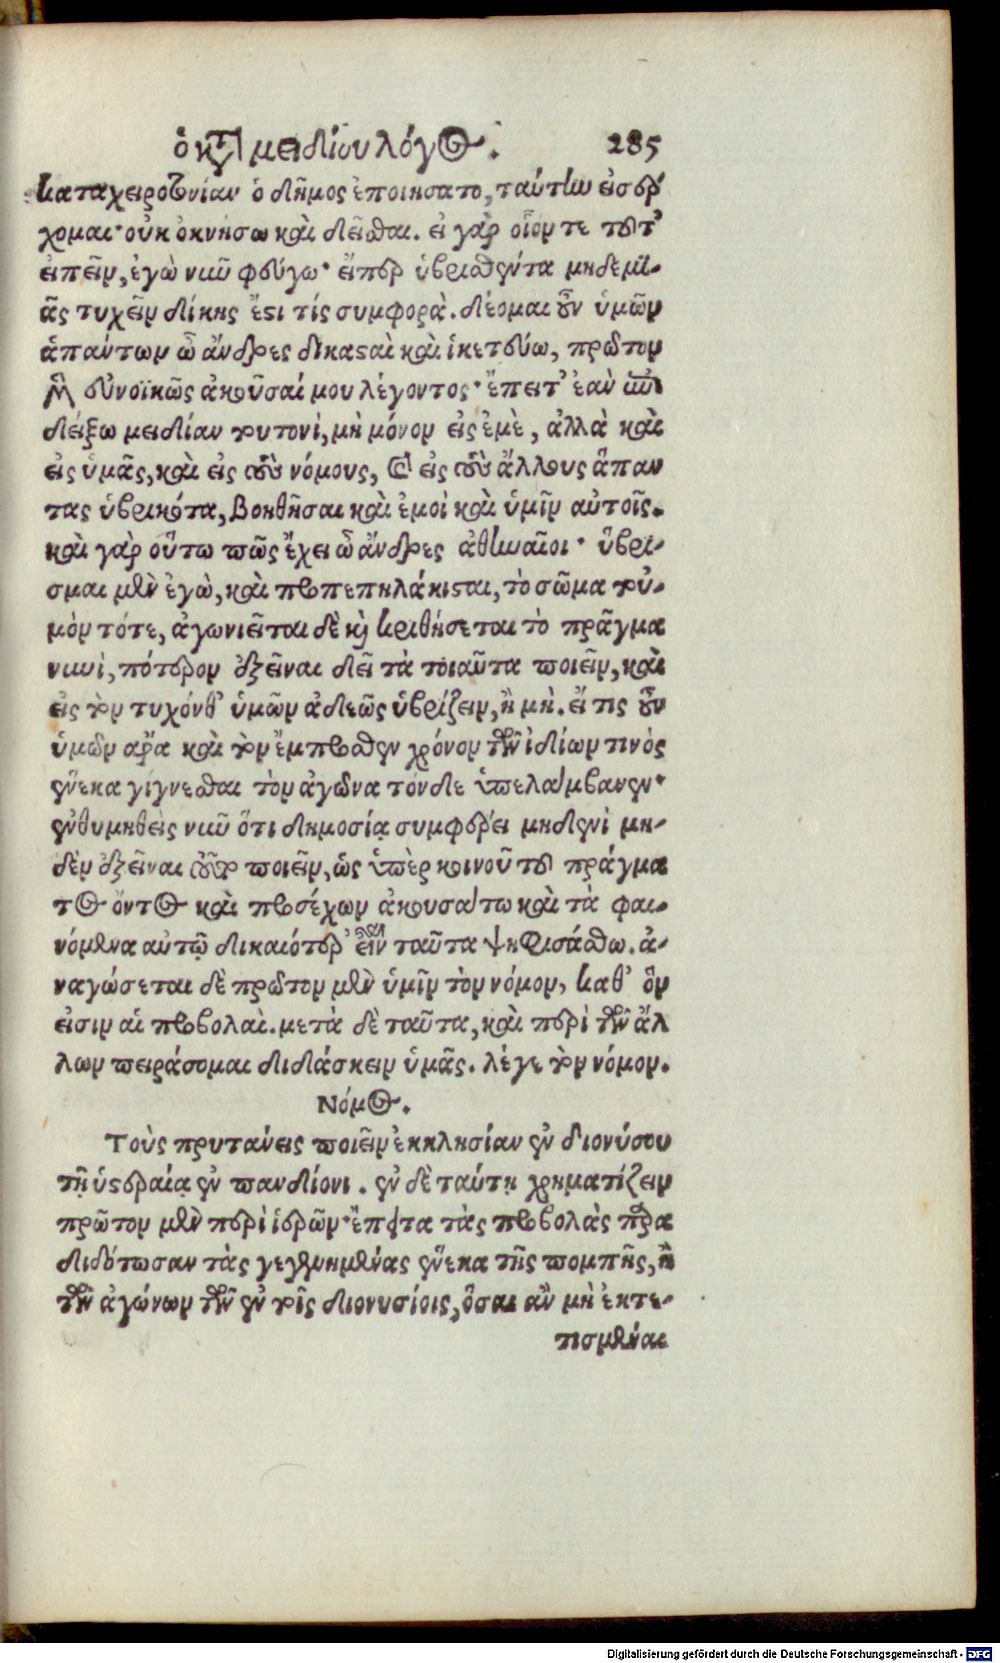 ὁ κατὰ μειδίου λόγος. 285
καταχειροτονίαν ὁ δῆμος ἐποιήσατο, ταύτην εἰσέρ
χομαι· οὐκ ὀκνήσω καὶ δεῖσθαι. εἰ γὰρ οἷόν τε τοῦτ'
εἰπεῖν, ἐγὼ νῦν φεύγω· εἴπερ ὑβρισθέντα μηδεμι-
ᾶς τυχεῖν δίκης ἔστι τίς συμφορὰ. δέομαι οὖν ὑμῶν
ἁπάντων ὦ ἄνδρες δικασταὶ καὶ ἱκετεύω, πρῶτον
μὲν εὐνοϊκῶς ἀκοῦσαί μου λέγοντος· ἔπειτ' ἐὰν
δείξω μειδίαν τουτονὶ, μὴ μόνον εἰς ἐμὲ, ἀλλὰ καὶ
εἰς ὑμᾶς, καὶ εἰς τοὺς νόμους, καὶ εἰς τοὺς ἄλλους ἅπαν
τας ὑβρικότα, βοηθῆσαι καὶ ἐμοὶ καὶ ὑμῖν αὐτοῖς.
καὶ γὰρ οὕτω πῶς ἔχει ὦ ἄνδρες ἀθηναῖοι· ὕβρι-
σμαι μὲν ἐγὼ, καὶ προπεπηλάκισται, τὸ σῶμα τοὐ-
μὸν τότε, ἀγωνιεῖται δὲ καὶ κριθήσεται τὸ πρᾶγμα
νυνὶ, πότερον ἐξεῖναι δεῖ τὰ τοιαῦτα ποιεῖν, καὶ
εἰς τὸν τυχόνθ' ὑμῶν ἀδεῶς ὑβρίζειν, ἢ μὴ. εἴ τις οὖν
ὑμῶν ἄρα καὶ τὸν ἔμπροσθεν χρόνον τῶν ἰδίων τινὸς
ἕνεκα γίγνεσθαι τὸν ἀγῶνα τόνδε ὑπελάμβανεν·
ἐνθυμηθεὶς νῦν ὅτι δημοσίᾳ συμφέρει μηδενὶ μη-
δὲν ἐξεῖναι τοιοῦτον ποιεῖν, ὡς ὑπὲρ κοινοῦ τοῦ πράγμα
τος ὄντος καὶ προσέχων ἀκουσάτω καὶ τὰ φαι-
νόμενα αὐτῷ δικαιότερ' εἶναι ταῦτα ψηφισάσθω. ἀ-
ναγώσεται δὲ πρῶτον μὲν ὑμῖν τὸν νόμον, καθ' ὃν
εἰσιν αἱ προβολαὶ. μετὰ δὲ ταῦτα, καὶ περὶ τῶν ἄλ
λων πειράσομαι διδάσκειν ὑμᾶς. λέγε τὸν νόμον.
Νόμος.
Τοὺς πρυτάνεις ποιεῖν ἐκκλησίαν ἐν διονύσου
τῇ ὑστεραίᾳ ἐν πανδίονι. ἐν δὲ ταύτῃ χρηματίζειν
πρῶτον μὲν περὶ ἱερῶν· ἔπειτα τὰς προβολὰς παρα
διδότωσαν τὰς γεγενημένας ἕνεκα τῆς πομπῆς, ἢ
τῶν ἀγώνων τῶν ἐν τοῖς διονυσίοις, ὅσαι ἂν μὴ ἐκτε-
τισμέναι
Digitalisierung gefördert durch die Deutsche Forschungsgemeinschaft - DFG